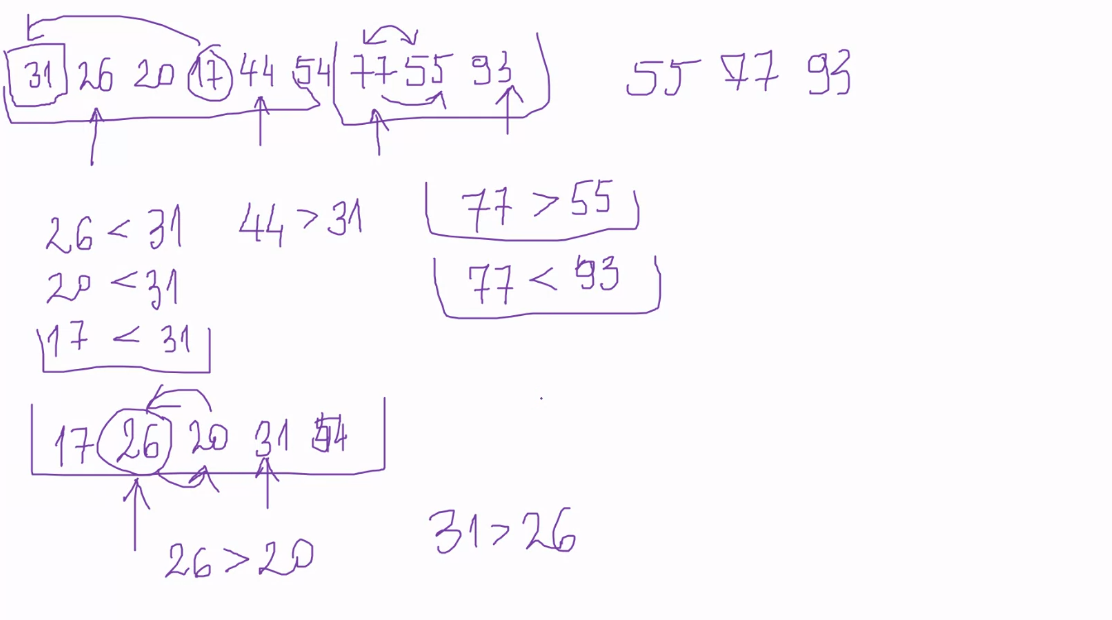 31 26 20 17 44 54 77 55 93 55 77 93
26 < 31 44 > 31 77 > 55
20 < 31 77 < 93
17 < 31
17 26 20 31 54
26 > 20 31 > 26